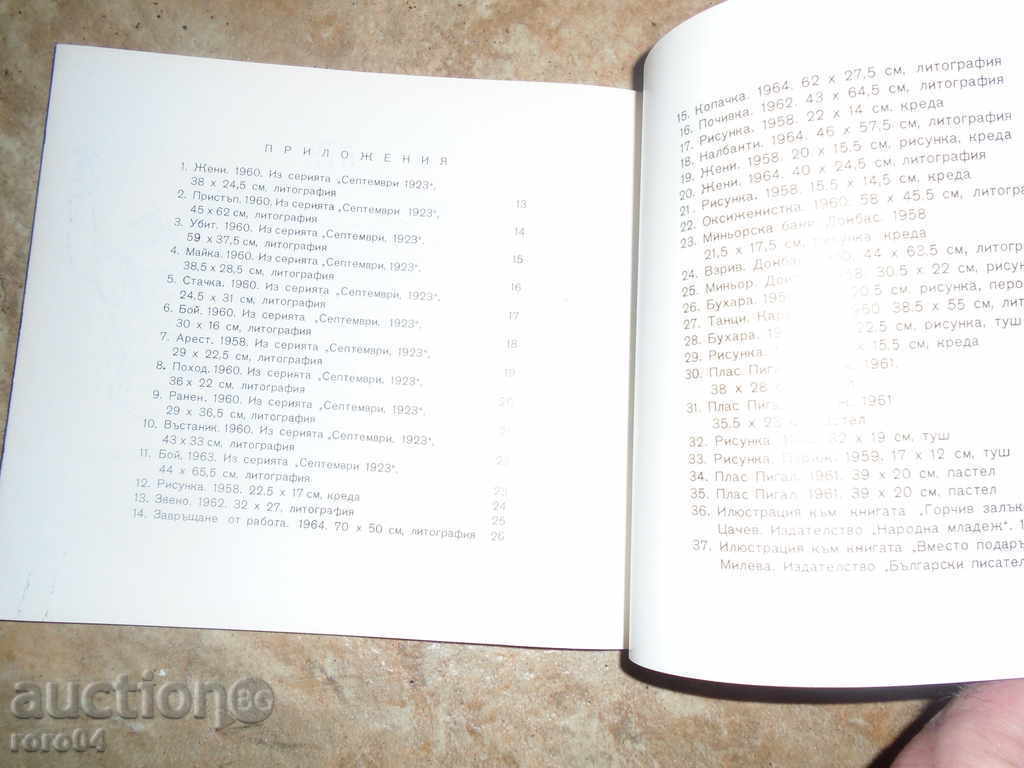 ПРИЛОЖЕНИЯ
1. Жени. 1960. Из серията „Септември 1923“,
38 х 24,5 см, литография 13
2. Пристъп. 1960. Из серията „Септември 1923“,
45 х 62 см, литография 14
3. Убит. 1960. Из серията „Септември, 1923“,
59 х 37,5 см, литография 15
4. Майка. 1960. Из серията „Септември, 1923“,
38,5 х 28,5 см, литография 16
5. Стачка. 1960. Из серията „Септември, 1923“,
24,5 х 31 см, литография 17
6. Бой. 1960. Из серията „Септември, 1923“,
30 х 16 см, литография 18
7. Арест. 1958. Из серията „Септември, 1923“,
29 х 22,5 см, литография 19
8. Поход. 1960. Из серията „Септември, 1923“,
36 х 22 см, литография 20
9. Ранен. 1960. Из серията „Септември, 1923“,
29 х 36,5 см, литография
10. Въстаник. 1960. Из серията „Септември, 1923“,
43 х 33 см, литография
11. Бой. 1963. Из серията „Септември 1923“,
44 х 65,5 см, литография
12. Рисунка. 1958. 22,5 х 17 см, креда 23
13. Звено. 1962. 32 х 27, литография 24
14. Завръщане от работа. 1964. 70 х 50 см, литография 25
26
15. Копачка. 1964. 62 х 27,5 см, литография
16. Почивка. 1962. 43 х 64,5 см, литография
17. Рисунка. 1958. 22 х 14 см, креда
18. Налбанти. 1964. 46 х 57,5 см, литография
19. Жени. 1958. 20 х 15.5 см, рисунка, креда
20. Жени. 1964. 40 х 24,5 см, литография
21. Рисунка. 1958. 15.5 х 14,5 см, креда
22. Оксиженистка. 1960. 58 х 45.5 см,
23. Миньорска баня. Донбас. 1958
21,5 х 17,5 см, рисунка, креда
24. Взрив. 44 х 63.5 см,
25. Миньор. 30.5 х 22 см,
26. Бухара. 20.5 см, рисунка,
27. Танци. 1960. 38.5 х 55 см,
28. Бухара. 22.5 см, рисунка, туш
29. Рисунка. х 15.5 см, креда
30. Плас 1961.
38 х 28
31. Плас 1961
35.5 х
32. Рисунка. 32 х 19 см, туш
33. Рисунка. Париж. 1959. 17 х 12 см, туш
34. Плас Пигал. 1961. 39 х 20 см, пастел
35. Плас Пигал. 1961. 39 х 20 см, пастел
36. Илюстрация към книгата „Горчив
Цачев. Издателство „Народна младеж“.
37. Илюстрация към книгата „Вместо
Милева. Издателство „Български
auction BG
roro04